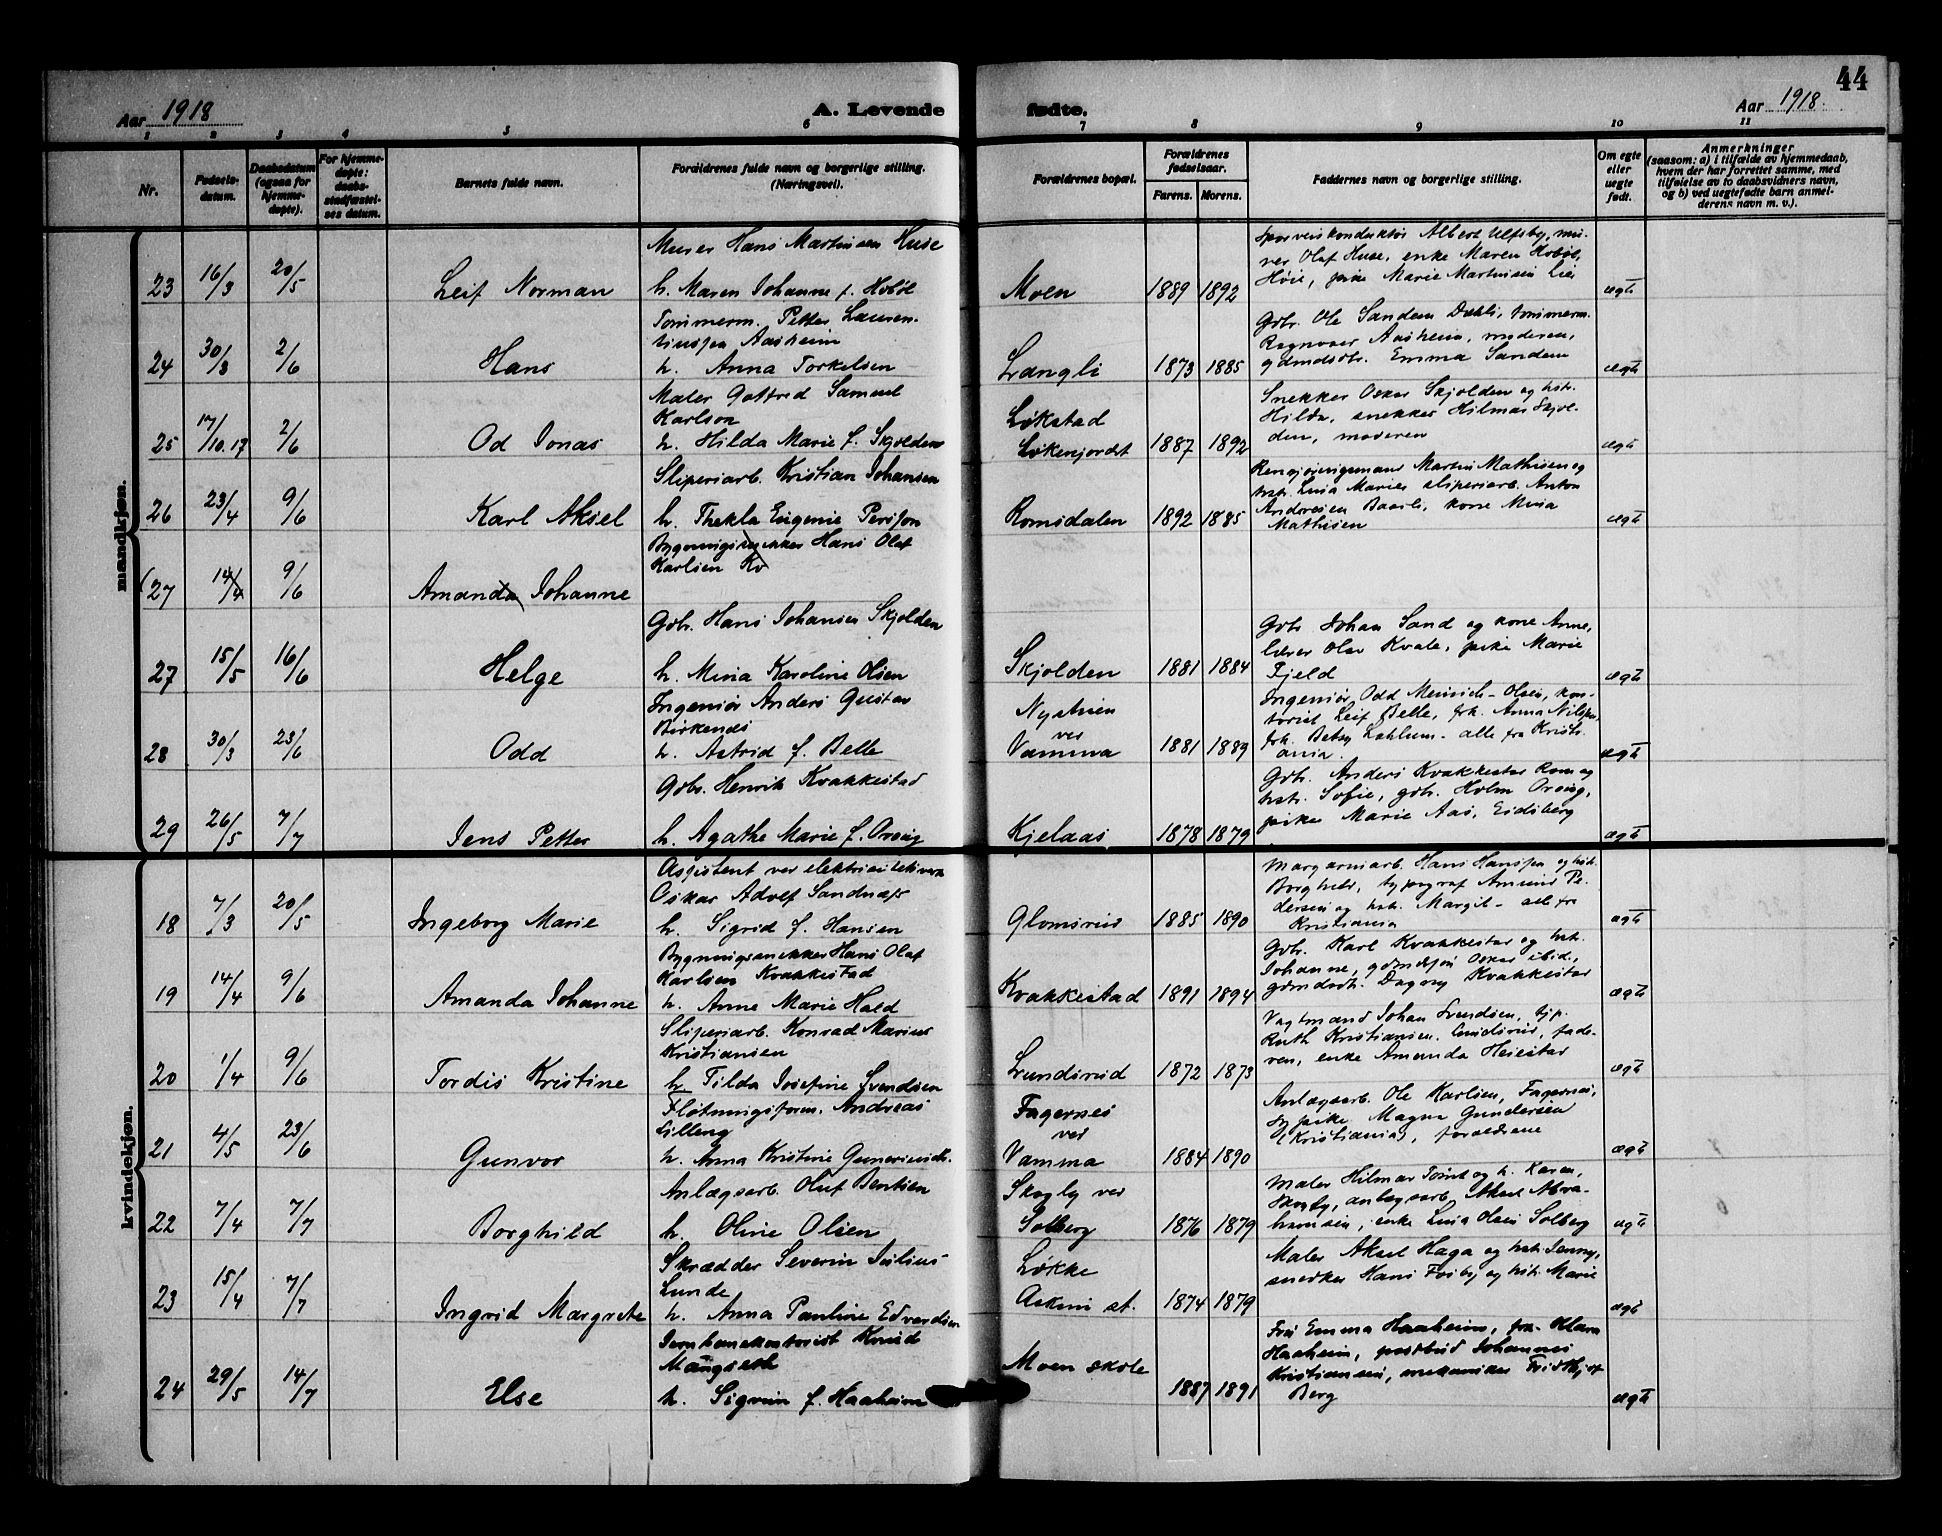 44
Aar 1918
A. Levende fødte.
Aar 1918.
1 2 3 4 5 6 7 8 9 10 11
Nr.
Fødsels-
datum.
Daabsdatum
(ogsaa for
hjemme-
døpte).
For hjemme-
døpte:
daabs-
stadfæstel-
ses datum.
Barnets fulde navn.
Forældrenes fulde navn og borgerlige stilling.
(Næringsvei).
Forældrenes bopæl.
Forældrenes
fødselsaar.
Farens. Morens.
Faddernes navn og borgerlige stilling.
Om egte
eller
uegte
født.
Anmerkninger
(saasom: a) i tilfælde av hjemmedaab,
hvem der har forrettet samme, med
tilføielse av to daabsvidners navn,
og b) ved uegtefødte barn anmel-
derens navn m. v.).
mandkjøn.
23 16/3 20/5 Leif Norman
Murer Hans Martinsen Huse
h. Maren Johanne f. Hobøl
Moen 1889 1892
Sporveiskonduktør Albert Ulfsby, mu-
rer Olaf Huse, enke Maren Hobøl,
Høie, pike Marie Martinsen Lie
ægte
24 30/3 2/6 Hans
Tømmerm. Petter Lauren-
tiussen Aasheim
h. Anna Torkelsen
Langli 1873 1885
Gbr. Ole Sandem Dæhli, tømmerm.
Ragnvar Aasheim, moderen,
gdmdsdtr. Emma Sandem
ægte
25 17/10.17 2/6 Od Jonas
Maler Gotfred Samuel
Karlson
h. Hilda Marie f. Skjolden
Løkstad
Løkenjordet 1887 1892
Snekker Oskar Skjolden og hstr.
Hilda, snekker Hilmar Skjol-
den, moderen
ægte
26 23/4 9/6 Karl Aksel
Sliperiarb. Kristian Johansen
h. Thekla Eugenie Persson
Romsdalen 1892 1885
Rengjøringsmand Martin Mathisen og
hstr. Lina Marie, sliperiarb. Anton
Andresen Baarli, kone Mina
Mathisen
ægte
(27 14/4 9/6 Amanda Johanne
Bygningssnekker Hans Olaf
Karlsen Kv
27 15/5 16/6 Helge
Gbr. Hans Johansen Skjolden
h. Mina Karoline Olsen
Skjolden 1881 1884
Gbr Johan Sand og kone Anne,
lærer Olav Kvale, pike Marie
Fjeld
ægte
28 30/3 23/6 Odd
Ingeniør Anders Gustav
Birkenes
h. Astrid f. Belle
Nystuen
ved
Vamma 1881 1889
Ingeniør Odd Meinich-Olsen, kon-
torist Leif Belle, frk. Anna Nilsen,
frk. Betsy Lahlum - alle fra Kristi-
ania.
ægte
29 26/5 7/7 Jens Petter
Gbr. Henrik Kvakkestad
h. Agathe Marie f. Ovsing
Kjelaas 1878 1879
Gbr. Anders Kvakkestad Rom og
hstr. Sofie, gbr. Holm Ovsing,
pike Marie Aas, Eidsberg
ægte
kvindekjøn.
18 7/3 20/5 Ingeborg Marie
Assistent ved elektricitetsverk
Oskar Adolf Sandnæss
h. Sigrid f. Hansen
Glomsrud 1885 1890
Margarinarb. Hans Hanssen og hst.
Borghild, typograf Amund Pe-
dersen og hstr. Margit - alle fra
Kristiania
ægte
19 14/4 9/6 Amanda Johanne
Bygningssnekker Hans Olaf
Karlsen Kvakkestad
h. Anne Marie Hald
Kvakkestad 1891 1894
Gbr. Karl Kvakkestad og hst.
Johanne, gdmdssøn Oskar ibid.,
gdmdsdt. Dagny Kvakkestad
ægte
20 1/4 9/6 Tordis Kristine
Sliperiarb. Konrad Marius
Kristiansen
h. Tilda Josefine Svendsen
Lundsrud 1872 1873
Vagtmand Johan Svendsen, tjp.
Ruth Kristiansen Lundsrud, fade-
ren, enke Amanda Heiestad
ægte
21 4/5 23/6 Gunvor
Fløtningsform. Andreas
Lilleng
h. Anna Kristine Gunerinsdt.
Fagernes
ved
Vamma 1884 1890
Anlægsarb. Ole Karlsen, Fagernes,
sypike Magna Gundersen
(Kristiania), forældrene
ægte
22 7/4 7/7 Borghild
Anlægsarb. Oluf Bentsen
h. Oline Olsen
Skogly ved
Solberg 1876 1879
Maler Hilmar Tomt og h. Karen,
Skogly, anlægsarb. Aksel Abra-
hamsen, enke Lina Olsen Solberg
ægte
23 15/4 7/7 Ingrid Margrete
Skrædder Severin Julius
Lunde
h. Anna Pauline Edvardsen
Løkke
Askim st. 1874 1879
Maler Aksel Haga og hstr. Jenny,
snedker Hans Frøby og hstr. Marie
ægte
24 29/5 14/7 Else
Jernbanekontorist Knud
Mangseth
h. Sigrun f. Haaheim
Moen skole
1887 1891
Fru Emma Haaheim, frk. Klara
Haaheim, postbud Johannes
Kristiansen, mekaniker Fridthjof
Berg
ægte